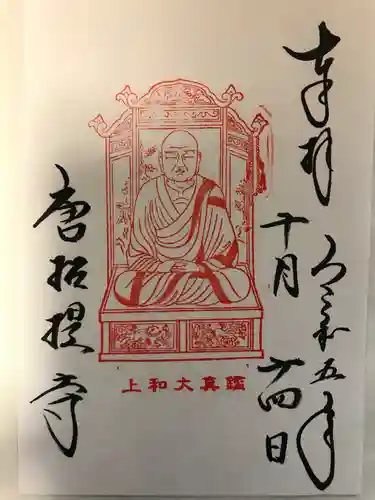 奉拝
令和五年
十月廿四日
上和大真鑑
唐招提寺